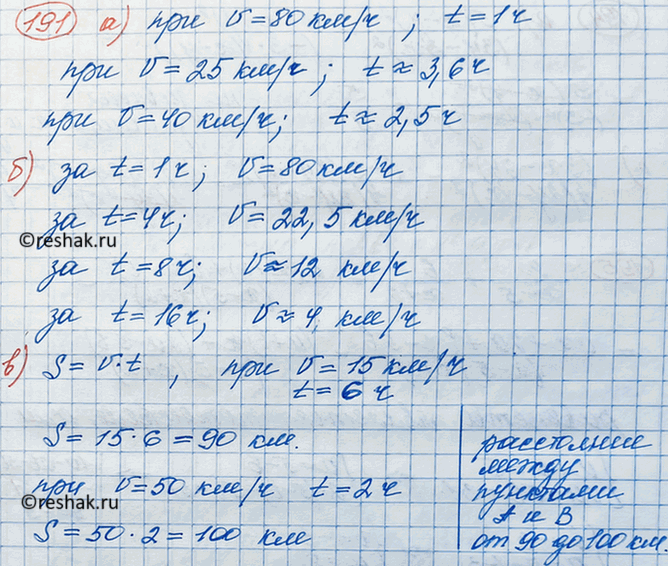 191 а) при v = 80 км/ч ; t = 1 ч
при v = 25 км/ч ; t ≈ 3,6 ч
при v = 40 км/ч ; t ≈ 2,5 ч
б) за t = 1 ч ; v = 80 км/ч
за t = 4 ч ; v = 22,5 км/ч
©reshak.ru
за t = 8 ч ; v ≈ 12 км/ч
за t = 16 ч ; v ≈ 4 км/ч
в) S = v·t , при v = 15 км/ч
t = 6 ч
S = 15·6 = 90 км.
при v = 50 км/ч t = 2 ч
©reshak.ru
S = 50·2 = 100 км
расстояние
между
пунктами
А и В
от 90 до 100 км.